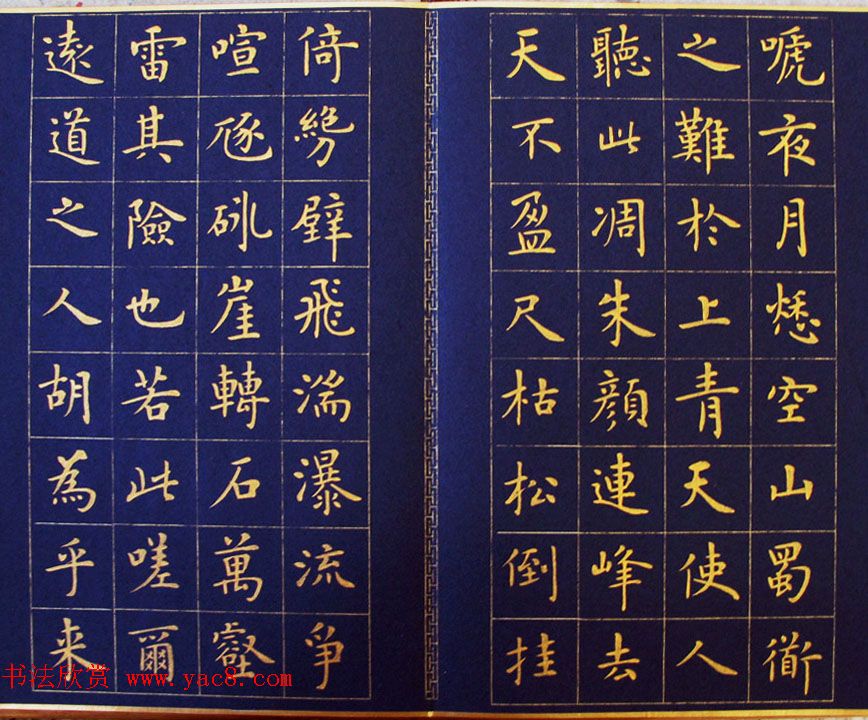 嗁夜月愁空山蜀衟
之難於上青天使人
聽此凋朱顏連峰去
天不盈尺枯松倒挂
倚絕壁飛湍瀑流爭
喧豗砯崖轉石萬壑
雷其險也若此嗟爾
遠道之人胡為乎来
书法欣赏 www.yac8.com